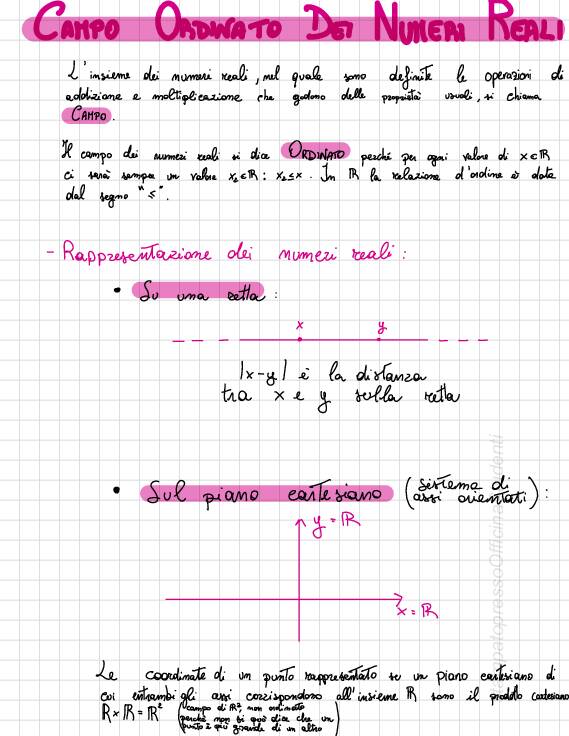 CAMPO ORDINATO DEI NUMERI REALI
L'insieme dei numeri reali, nel quale sono definite le operazioni di
addizione e moltiplicazione che godono delle proprietà usuali, si chiama
CAMPO.
Il campo dei numeri reali si dice ORDINATO perché per ogni valore di x∈ℝ
ci sarà sempre un valore x₂∈ℝ : x₂≤x. In ℝ la relazione d'ordine è data
dal segno "≤".
- Rappresentazione dei numeri reali :
• Su una retta :
x y
|x-y| è la distanza
tra x e y sulla retta
• Sul piano cartesiano (sistema di assi orientati) :
y = ℝ
x = ℝ
Le coordinate di un punto rappresentato su un piano cartesiano di
cui entrambi gli assi corrispondono all'insieme ℝ sono il prodotto cartesiano
ℝ×ℝ = ℝ² (campo di ℝ², non ordinato
perché non si può dire che un
punto è più grande di un altro)